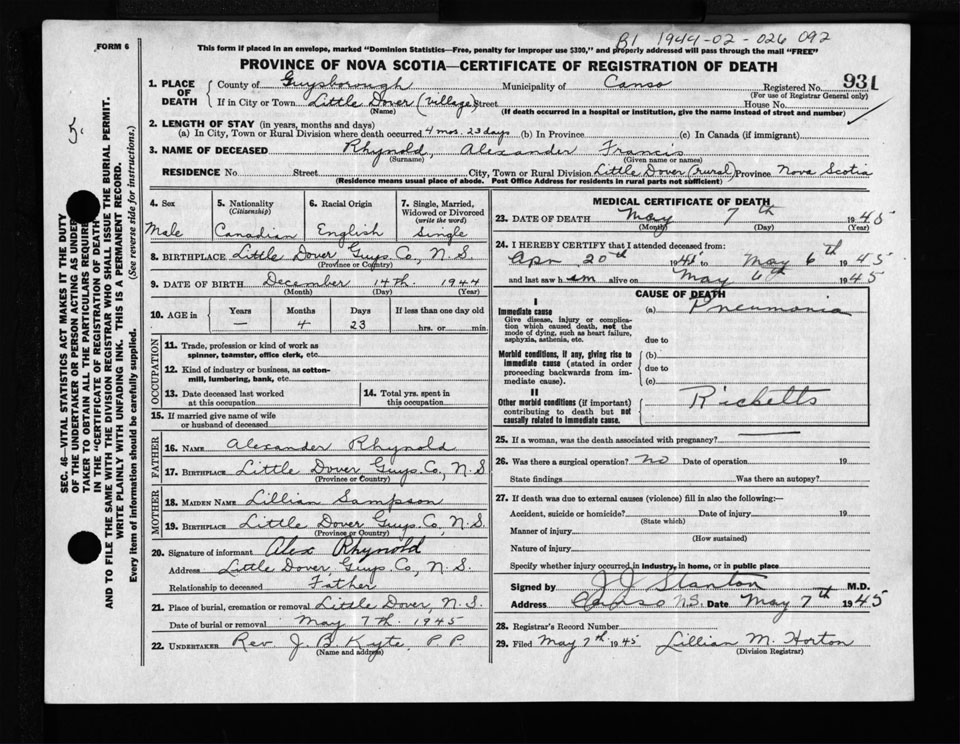 FORM 6
B1 1944-02-026 092
This form if placed in an envelope, marked "Dominion Statistics—Free, penalty for improper use $300," and properly addressed will pass through the mail "FREE"
PROVINCE OF NOVA SCOTIA—CERTIFICATE OF REGISTRATION OF DEATH
1. PLACE OF DEATH County of Guysborough Municipality of Canso Registered No. 931
(For use of Registrar General only)
If in City or Town Little Dover (village) Street House No.
(Name) (If death occurred in a hospital or institution, give the name instead of street and number)
2. LENGTH OF STAY (in years, months and days)
(a) In City, Town or Rural Division where death occurred 4 mos. 23 days (b) In Province (c) In Canada (if immigrant)
3. NAME OF DECEASED Rhynold, Alexander Francis
(Surname) (Given name or names)
RESIDENCE No Street City, Town or Rural Division Little Dover (rural) Province Nova Scotia
(Residence means usual place of abode. Post Office Address for residents in rural parts not sufficient)
SEC. 46—VITAL STATISTICS ACT MAKES IT THE DUTY
OF THE UNDERTAKER OR PERSON ACTING AS UNDER-
TAKER TO OBTAIN ALL THE PARTICULARS REQUIRED
IN THE "CERTIFICATE OF REGISTRATION OF DEATH"
AND TO FILE THE SAME WITH THE DIVISION REGISTRAR WHO SHALL ISSUE THE BURIAL PERMIT.
WRITE PLAINLY WITH UNFADING INK. THIS IS A PERMANENT RECORD.
Every item of information should be carefully supplied. (See reverse side for instructions.)
4. Sex 5. Nationality (Citizenship) 6. Racial Origin 7. Single, Married, Widowed or Divorced (write the word)
Male Canadian English Single
8. BIRTHPLACE Little Dover Guys. Co, N.S.
(Province or Country)
9. DATE OF BIRTH December 14th. 1944
(Month) (Day) (Year)
10. AGE in Years Months Days If less than one day old
— 4 23 hrs. or min.
OCCUPATION
11. Trade, profession or kind of work as
spinner, teamster, office clerk, etc.
12. Kind of industry or business, as cotton-
mill, lumbering, bank, etc.
13. Date deceased last worked at this occupation 14. Total yrs. spent in this occupation
15. If married give name of wife
or husband of deceased
FATHER
16. NAME Alexander Rhynold
17. BIRTHPLACE Little Dover Guys. Co, N.S
(Province or Country)
MOTHER
18. MAIDEN NAME Lillian Sampson
19. BIRTHPLACE Little Dover Guys. Co, N.S.
(Province or Country)
20. Signature of informant Alex Rhynold
Address Little Dover, Guys. Co, N.S.
Relationship to deceased Father
21. Place of burial, cremation or removal Little Dover, N.S.
Date of burial or removal May 7th. 1945
22. UNDERTAKER Rev. J. B. Kyte, P.P.
(Name and address)
MEDICAL CERTIFICATE OF DEATH
23. DATE OF DEATH May 7th 1945
(Month) (Day) (Year)
24. I HEREBY CERTIFY that I attended deceased from:
Apr 20th 1945 to May 6th 1945
and last saw him alive on May 6th 1945
CAUSE OF DEATH
I
Immediate cause (a) Pneumonia
Give disease, injury or complica-
tion which caused death, not the
mode of dying, such as heart failure,
asphyxia, asthenia, etc. due to
Morbid conditions, if any, giving rise to (b)
immediate cause (stated in order due to
proceeding backwards from im-
mediate cause). (c)
II
Other morbid conditions (if important) Ricketts
contributing to death but not
causally related to immediate cause.
25. If a woman, was the death associated with pregnancy?
26. Was there a surgical operation? no Date of operation 19
State findings Was there an autopsy?
27. If death was due to external causes (violence) fill in also the following:—
Accident, suicide or homicide? Date of injury 19
(State which)
Manner of injury
(How sustained)
Nature of injury
Specify whether injury occurred in industry, in home, or in public place
Signed by J J Stanton M.D.
Address Canso N.S. Date May 7th 1945
28. Registrar's Record Number
29. Filed May 7th 1945 Lillian M. Horton
(Division Registrar)